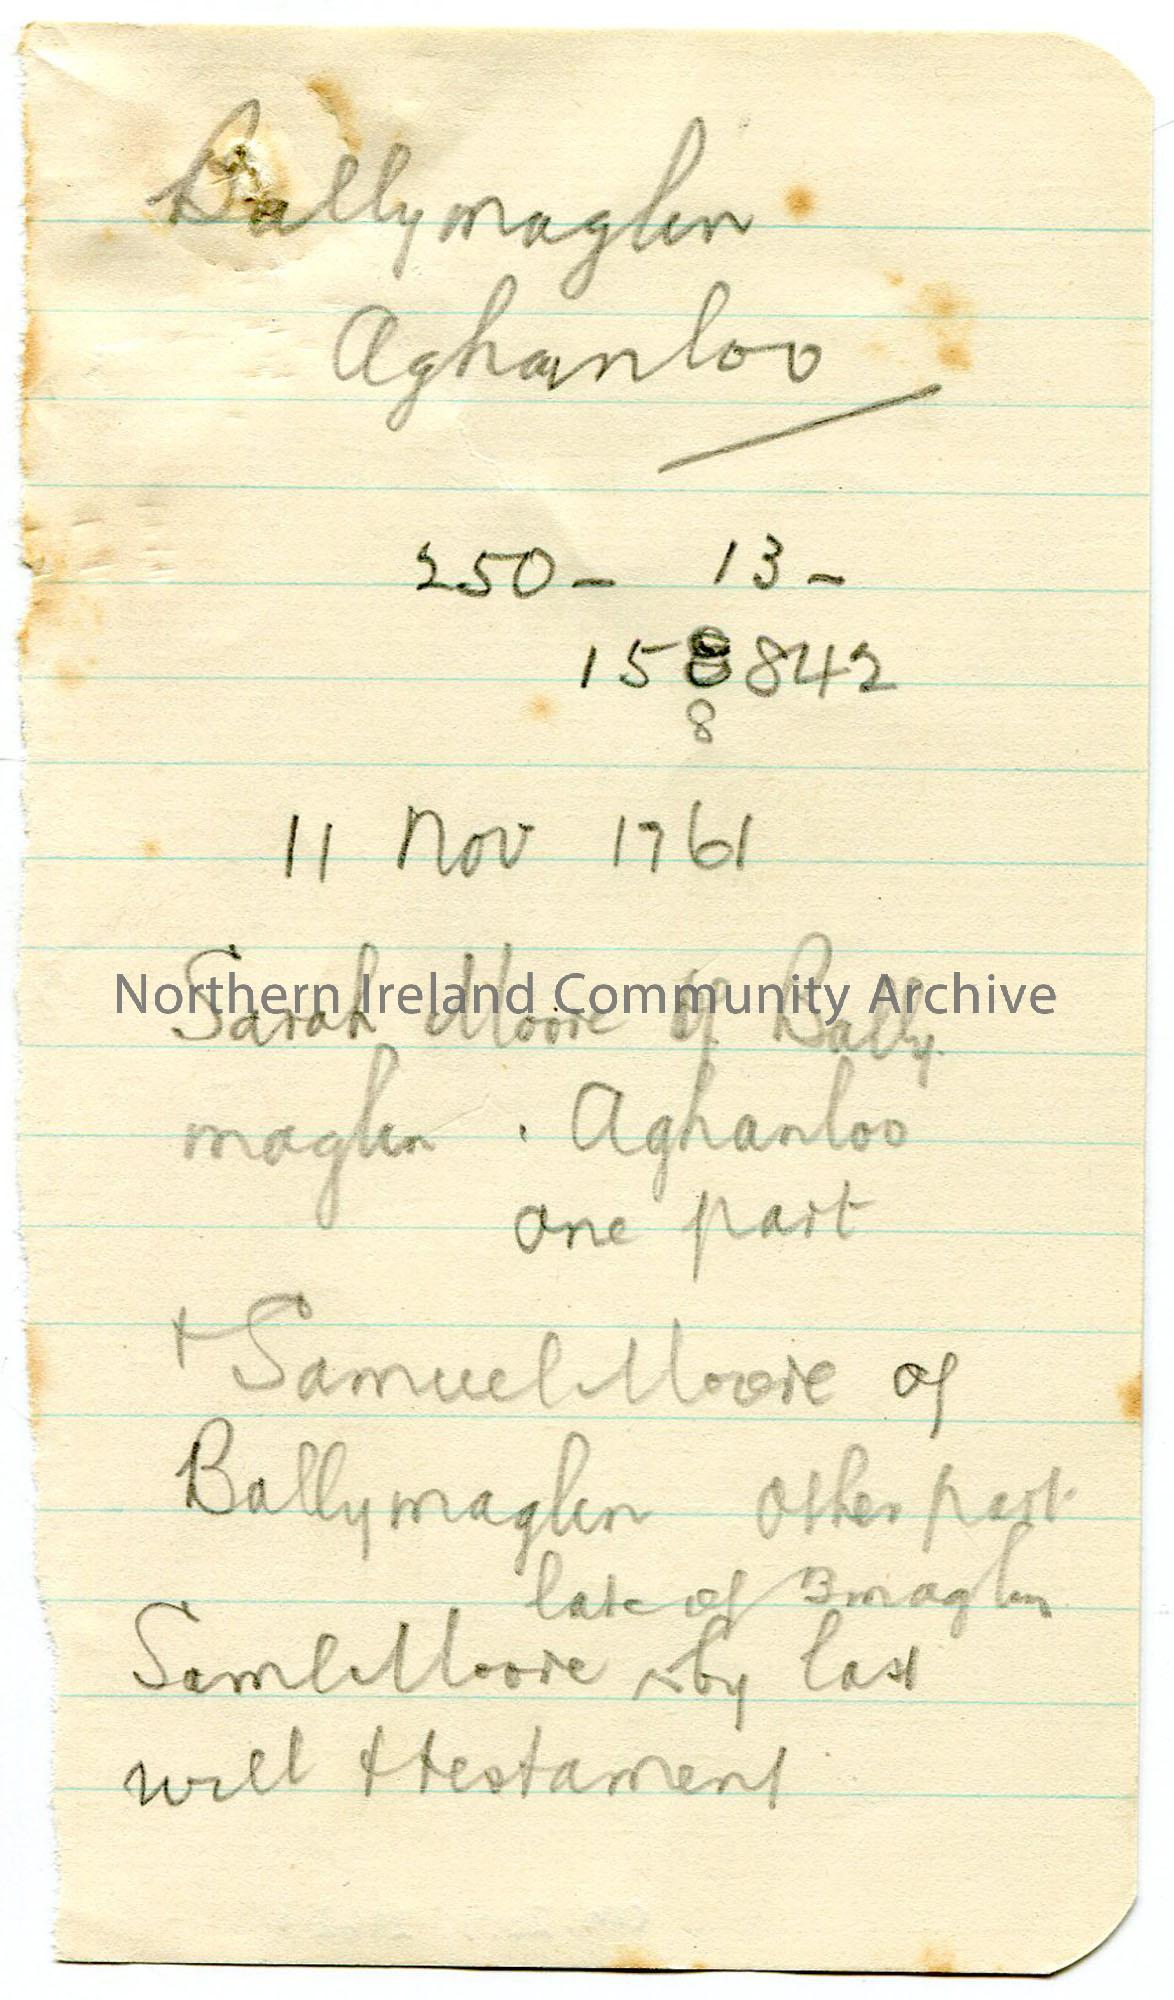 Ballymaglin
Aghanloo
250 - 13 -
158842
8
11 Nov 1761
Sarah Moore of Bally
maglin . Aghanloo
one part
+ Samuel Moore of
Ballymaglin other part
late of Bmaglin
Saml Moore by last
will + testament
Northern Ireland Community Archive